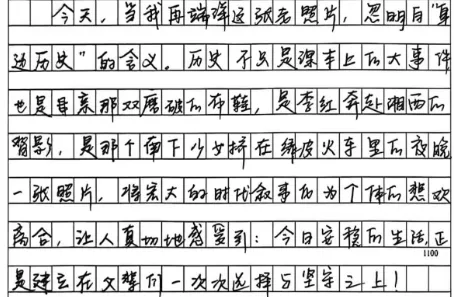 今天，当我再端详这张老照片，忽明白"身
边历史"的含义。历史不只是课本上的大事件
也是母亲那双磨破的布鞋，是李红奔赴湘西的
背影，是那个南下少女挤在绿皮火车里的夜晚
一张照片，将宏大的时代叙事化为个体的悲欢
离合，让人真切地感受到：今日安稳的生活，正
1100
是建立在父辈们一次次选择与坚守之上！